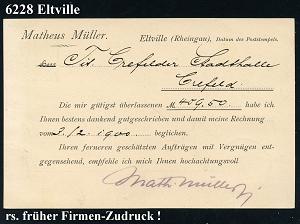 6228 Eltville
Matheus Müller.
Eltville (Rheingau), Datum des Poststempels.
Tit. Crefelder Stadthalle
Crefeld
Die mir gütigst überlassenen M 409,50 habe ich
Ihnen bestens dankend gutgeschrieben und damit meine Rechnung
vom 3./2. 1900 beglichen.
Ihren ferneren geschätzten Aufträgen mit Vergnügen ent-
gegensehend, empfehle ich mich Ihnen hochachtungsvoll
Math. Müller
rs. früher Firmen-Zudruck !